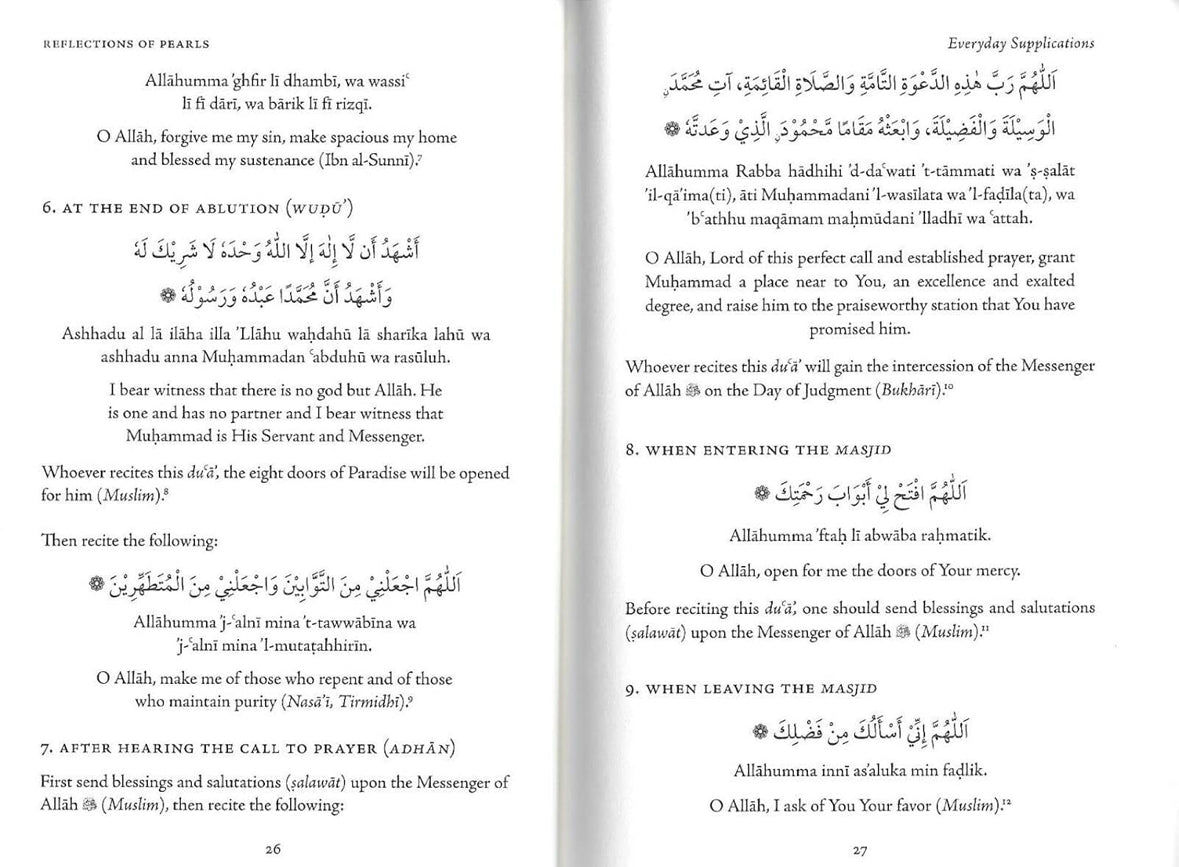 REFLECTIONS OF PEARLS
Allāhumma 'ghfir lī dhambī, wa wassiʿ
lī fī dārī, wa bārik lī fī rizqī.
O Allāh, forgive me my sin, make spacious my home
and blessed my sustenance (Ibn al-Sunnī).⁷
6. AT THE END OF ABLUTION (WUḌŪ')
أَشْهَدُ أَن لَّا إِلٰهَ إِلَّا اللّٰهُ وَحْدَهُ لَا شَرِيْكَ لَهُ
وَأَشْهَدُ أَنَّ مُحَمَّدًا عَبْدُهُ وَرَسُوْلُهُ ۞
Ashhadu al lā ilāha illa 'Llāhu waḥdahū lā sharīka lahū wa
ashhadu anna Muḥammadan ʿabduhū wa rasūluh.
I bear witness that there is no god but Allāh. He
is one and has no partner and I bear witness that
Muḥammad is His Servant and Messenger.
Whoever recites this duʿā', the eight doors of Paradise will be opened
for him (Muslim).⁸
Then recite the following:
اَللّٰهُمَّ اجْعَلْنِيْ مِنَ التَّوَّابِيْنَ وَاجْعَلْنِيْ مِنَ الْمُتَطَهِّرِيْنَ ۞
Allāhumma 'j-ʿalnī mina 't-tawwābīna wa
'j-ʿalnī mina 'l-mutaṭahhirīn.
O Allāh, make me of those who repent and of those
who maintain purity (Nasā'ī, Tirmidhī).⁹
7. AFTER HEARING THE CALL TO PRAYER (ADHĀN)
First send blessings and salutations (ṣalawāt) upon the Messenger of
Allāh ﷺ (Muslim), then recite the following:
26
Everyday Supplications
اَللّٰهُمَّ رَبَّ هٰذِهِ الدَّعْوَةِ التَّامَّةِ وَالصَّلَاةِ الْقَائِمَةِ، آتِ مُحَمَّدَنِ
الْوَسِيْلَةَ وَالْفَضِيْلَةَ، وَابْعَثْهُ مَقَامًا مَّحْمُوْدَنِ الَّذِيْ وَعَدتَّهُ ۞
Allāhumma Rabba hādhihi 'd-daʿwati 't-tāmmati wa 'ṣ-ṣalāt
'il-qā'ima(ti), āti Muḥammadani 'l-wasīlata wa 'l-faḍīla(ta), wa
'bʿathhu maqāmam maḥmūdani 'lladhī wa ʿattah.
O Allāh, Lord of this perfect call and established prayer, grant
Muḥammad a place near to You, an excellence and exalted
degree, and raise him to the praiseworthy station that You have
promised him.
Whoever recites this duʿā' will gain the intercession of the Messenger
of Allāh ﷺ on the Day of Judgment (Bukhārī).¹⁰
8. WHEN ENTERING THE MASJID
اَللّٰهُمَّ افْتَحْ لِيْ أَبْوَابَ رَحْمَتِكَ ۞
Allāhumma 'ftaḥ lī abwāba raḥmatik.
O Allāh, open for me the doors of Your mercy.
Before reciting this duʿā', one should send blessings and salutations
(ṣalawāt) upon the Messenger of Allāh ﷺ (Muslim).¹¹
9. WHEN LEAVING THE MASJID
اَللّٰهُمَّ إِنِّيْ أَسْأَلُكَ مِنْ فَضْلِكَ ۞
Allāhumma innī as'aluka min faḍlik.
O Allāh, I ask of You Your favor (Muslim).¹²
27